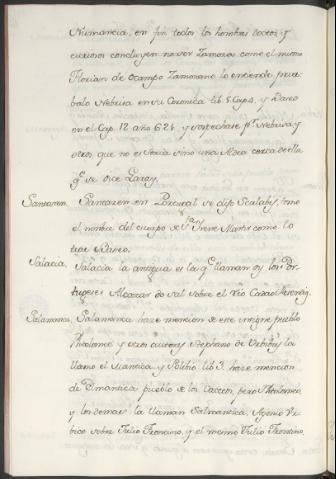 Numancia, en fin todos los hombres doctos, y
curiosos concluyen no ser Zamora como el mismo
Florian de Ocampo Zamorano lo entiende prue
balo Nebrixa en su Coronica lib 5 Cap 4, y
en el Cap. 12 año 624, y sospechase pr. Nebrixa y
otros que no es Soria sino una Aldea cerca de ella
qe. se dice Garay.
Santaren Santaren en Portugal se dijo Scalabis, tomo
el nombre del cuerpo de Sta. Irene Martir como lo
trae
Salacia, Salacia la antigua es la qe. llaman oy los Por-
tugueses Alcazar do sal sobre el rio
Salamanca, Salamanca haze mencion de este insigne pueblo
Ptholomeo y otros autores Stephano de la
llamo el y Polibio lib 3. haze mencion
de pueblo de los Vacceos, pero Ptholomeo,
y los demas la llaman Salmantica,
sobre Julio Frontino, y el mismo Julio Frontino,